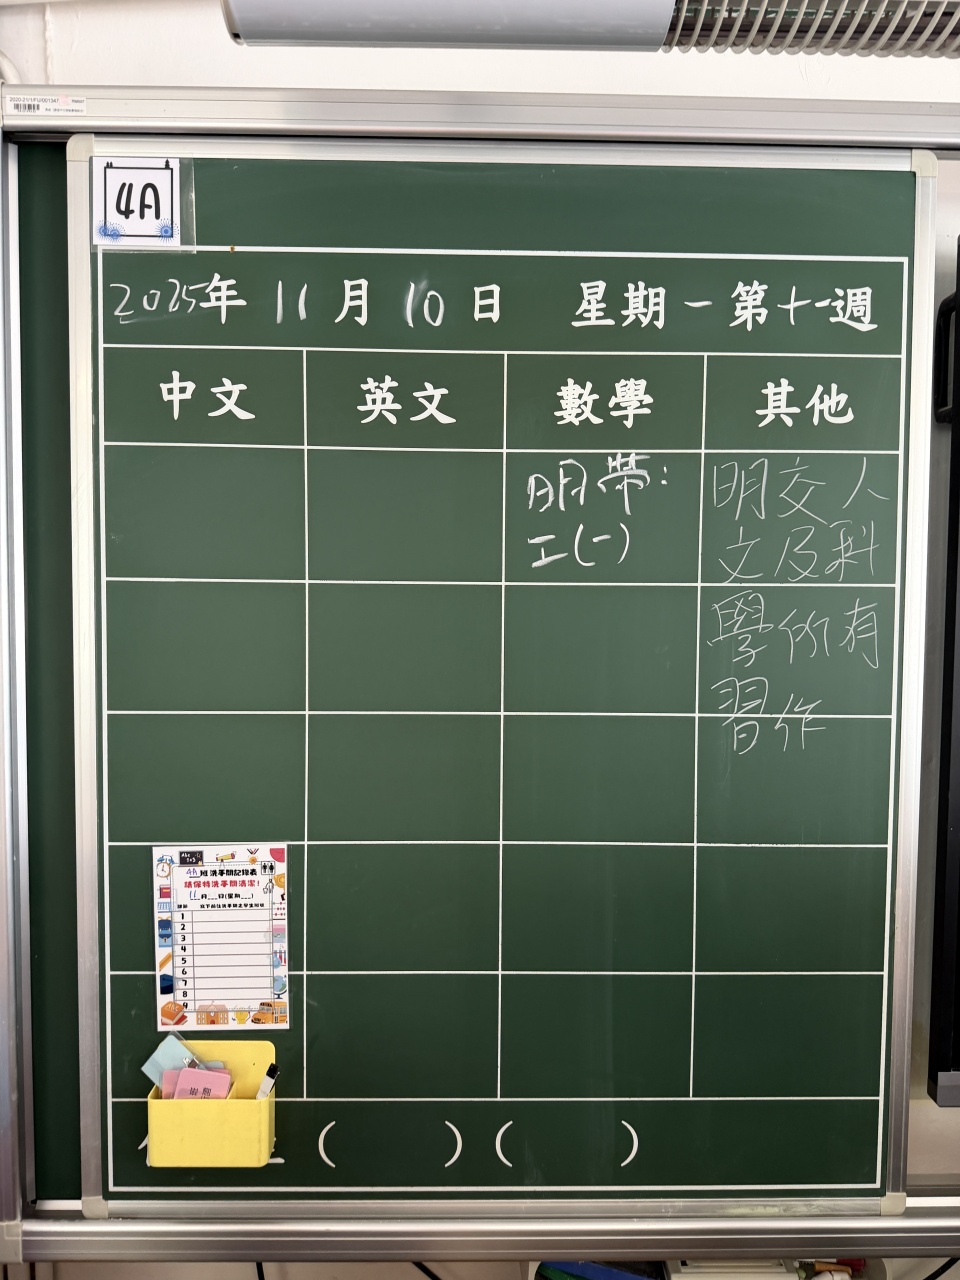 4A
2025年 11月10日 星期一第十一週
中文 英文 數學 其他
明帶：
工(一)
明交人
文及科
學所有
習作
4A班洗手間記錄表
請保持洗手間清潔！
11月__日(星期__)
1
2
3
4
5
6
7
8
9
( ) ( )